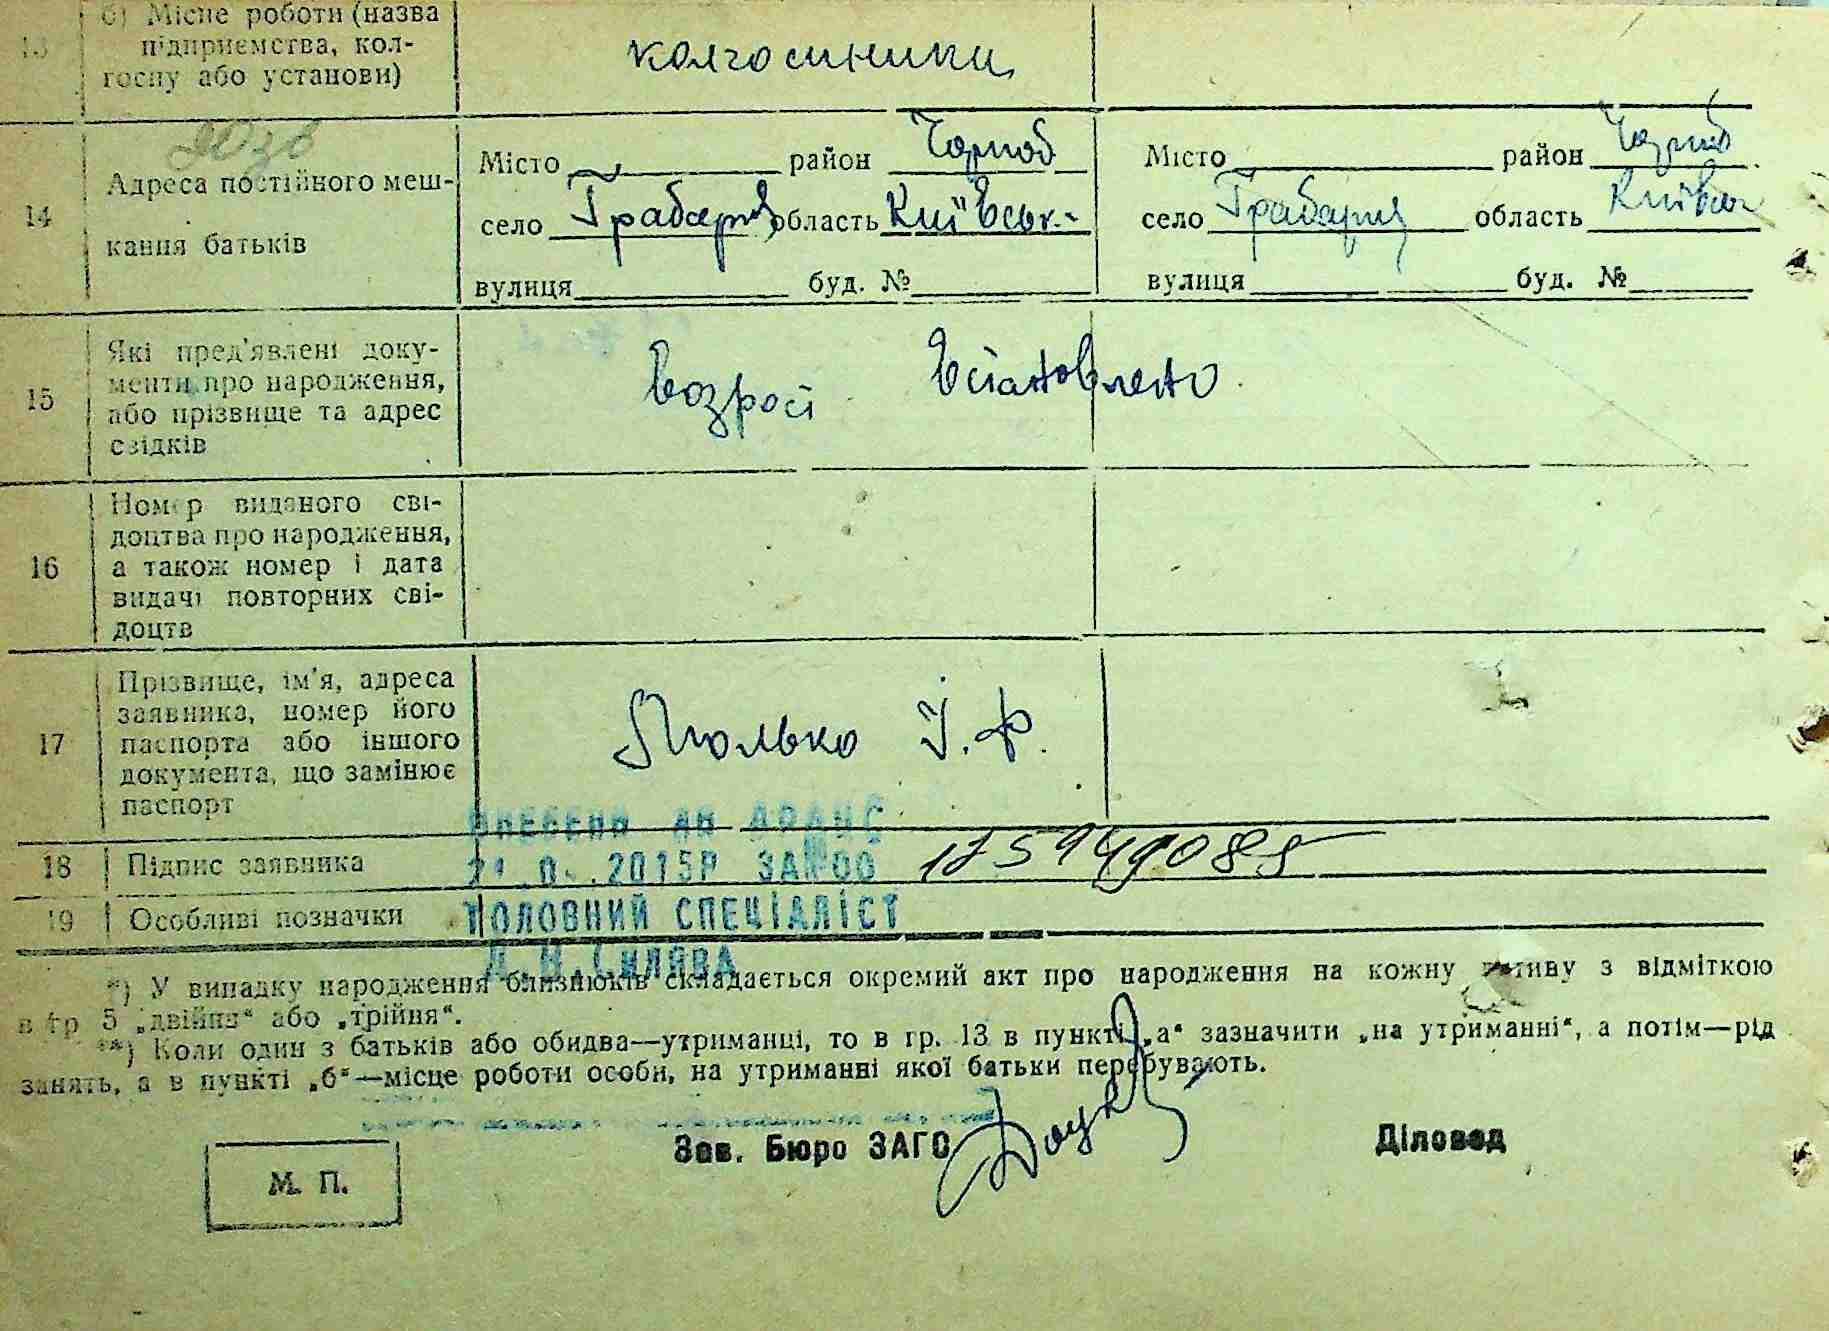 13 б) Місце роботи (назва
підприємства, кол-
госпу або установи)
колгоспники
14 Адреса постійного меш-
кання батьків
Місто район Чорноб
село Грабарня область Київськ.
вулиця буд. №
Місто район Чорноб
село Грабарня область Київськ
вулиця буд. №
15 Які пред'явлені доку-
менти про народження,
або прізвище та адрес
свідків
возрост встановлено
16 Номер виданого сві-
доцтва про народження,
а також номер і дата
видачі повторних сві-
доцтв
17 Прізвище, ім'я, адреса
заявника, номер його
паспорта або іншого
документа, що замінює
паспорт
І. Ф.
18 Підпис заявника
19 Особливі позначки
2015Р ЗА №00
ГОЛОВНИЙ СПЕЦІАЛІСТ
*) У випадку народження близнюків складається окремий акт про народження на кожну дитину з відміткою
в гр 5 „двійня“ або „трійня“.
**) Коли один з батьків або обидва—утриманці, то в гр. 13 в пункті „а“ зазначити „на утриманні“, а потім—рід
занять, а в пункті „б“—місце роботи особи, на утриманні якої батьки перебувають.
М. П.
Зав. Бюро ЗАГС
Діловод